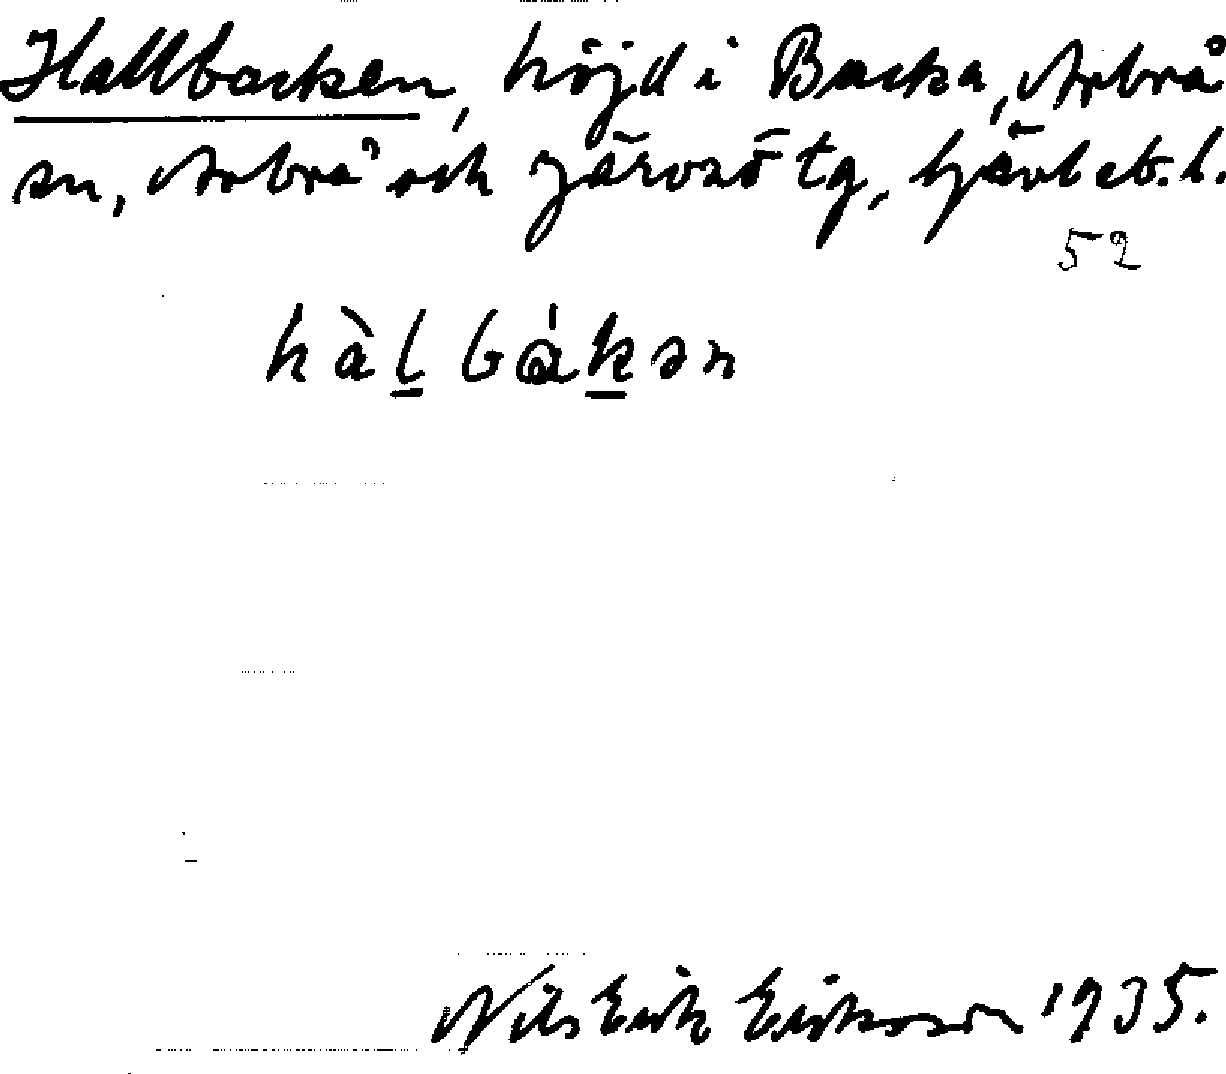 Hallbacken, höjd i Backa, Arbrå
sn, Arbrå och Järvsö tg, Gävleb. l.
52
hàl bákən
Nils Erik Eriksson 1935.